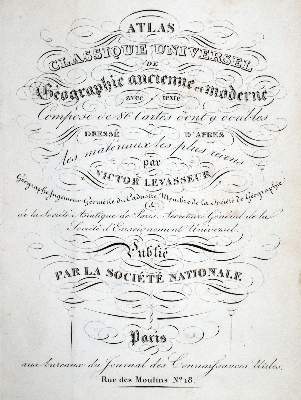 ATLAS
CLASSIQUE UNIVERSEL
DE
Géographie ancienne et moderne
avec texte
Composé de 80 Cartes dont 9 doubles
DRESSÉ D'APRÈS
les matériaux les plus récens
par
VICTOR LEVASSEUR
Géographe Ingénieur Géomètre du Cadastre Membre de la Société de Géographie
de la Société Asiatique de Paris, Secrétaire Général de la
Société d'Enseignement Universel.
Publié
PAR LA SOCIÉTÉ NATIONALE
Paris
aux bureaux du Journal des Connaissances Utiles,
Rue des Moulins Nº 18.